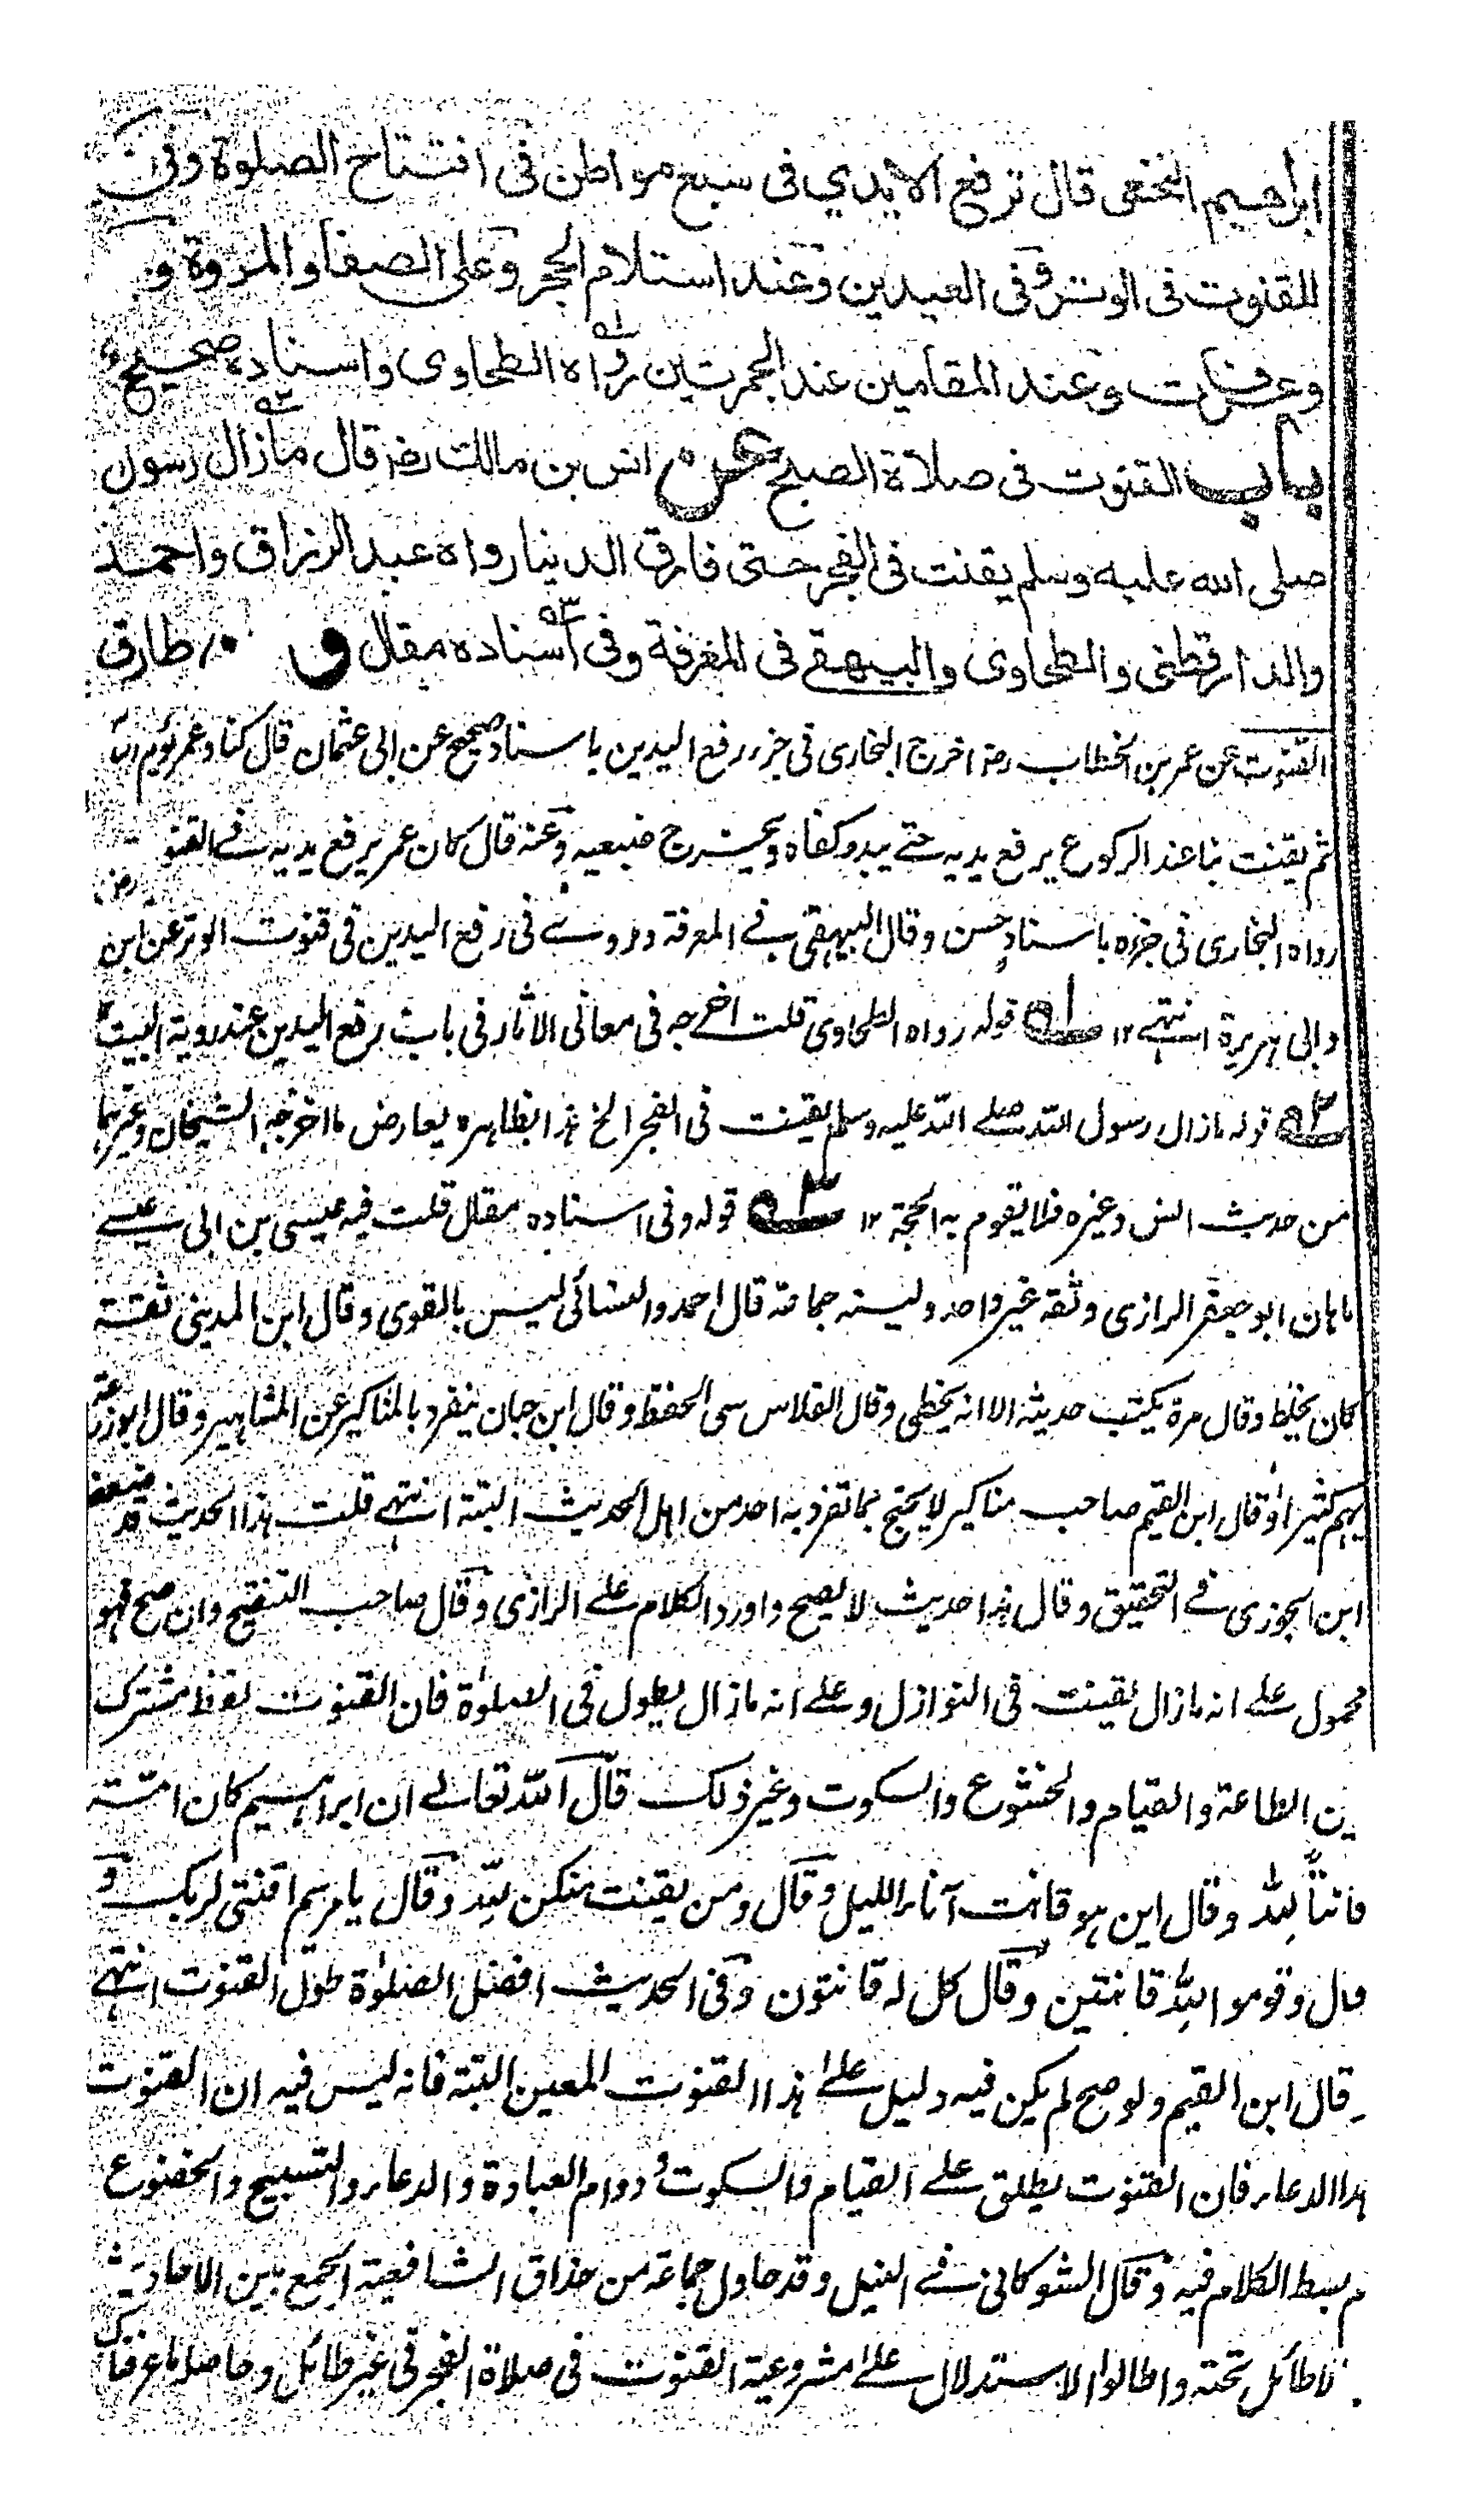 ابراهيم النخعى قال ترفع الايدي فى سبع مواطن فى افتتاح الصلوة وفى
للقنوت فى الوتر وفى العيدين وعند استلام الحجر وعلى الصفا والمروة و
وعرفات وعند المقامين عند الجمرتين رواه الطحاوى واسناده صحيح
باب القنوت فى صلاة الصبح عن انس بن مالك رضـ قال ما زال رسول
صلى الله عليه وسلم يقنت فى الفجر حتى فارق الدنيا رواه عبد الرزاق واحمد
والدارقطنى والطحاوى والبيهقے فى المعرفة وفى اسناده مقال و طارق
القنوت عن عمر بن الخطاب رضـ اخرج البخارى فى جزء رفع اليدين باسناد صحيح عن ابى عثمان قال كنا وعمر يؤم الناس
ثم يقنت بنا عند الركوع يرفع يديه حتے يبدو كفاه ويخرج ضبعيه وعنه قال كان عمر يرفع يديه فے القنو
رواه البخارى فى جزءه باسناد حسن وقال البيهقى فے المعرفة وروے فى رفع اليدين فى قنوت الوتر عن ابن
وابى هريرة انتهے ١٢ ١ـه قوله رواه الطحاوى قلت اخرجه فى معانى الاثار فى باب رفع اليدين عند روية البيت
٢ـه قوله ما زال رسول الله صلے الله عليه وسلم يقنت فى الفجر الخ هذا بظاهره يعارض ما اخرجه الشيخان وغيرهما
من حديث انس وغيره فلا يقوم به الحجة ١٢ ٣ـه قوله وفى اسناده مقال قلت فيه عيسى بن ابى عيسے
ماهان ابو جعفر الرازى وثقه غير واحد ولينه جماعة قال احمد والنسائى ليس بالقوى وقال ابن المدينى ثقة
كان يخلط وقال مرة يكتب حديثه الا انه يخطى وقال الفلاس سى الحفظ وقال ابن حبان ينفرد بالمناكير عن المشاهير وقال ابو زرعة
يهم كثيرا وقال ابن القيم صاحب مناكير لا يحتج بما تفرد به احد من اهل الحديث البتة انتهے قلت هذا الحديث قد ضعفه
ابن الجوزى فے التحقيق وقال هذا حديث لا يصح واورد الكلام علے الرازى وقال صاحب التنقيح وان صح فهو
محمول علے انه ما زال يقنت فى النوازل وعلے انه ما زال يطول فى الصلوٰة فان القنوت لفظ مشترك
ين الطاعة والقيام والخشوع والسكوت وغير ذلك قال الله تعالے ان ابراهيم كان امة
قانتاً لِلّٰه وقال امن هو قانت آناء الليل وقال ومن يقنت منكن لِلّٰه وقال يا مريم اقنتى لربك و
قال وقوموا لِلّٰه قانتين وقال كل له قانتون وفى الحديث افضل الصلوٰة طول القنوت انتهے
قال ابن القيم ولو صح لم يكن فيه دليل علے هذا القنوت المعين البتة فانه ليس فيه ان القنوت
هذا الدعاء فان القنوت يطلق علے القيام والسكوت ودوام العبادة والدعاء والتسبيح والخضوع
م بسط الكلام فيه وقال الشوكانى فے النيل وقد حاول جماعة من حذاق الشافعية الجمع بين الاحاديث
لا طائل تحته واطالوا الاستدلال علے مشروعية القنوت فى صلاة الفجر فى غير طائل وحاصله ما عرفناك